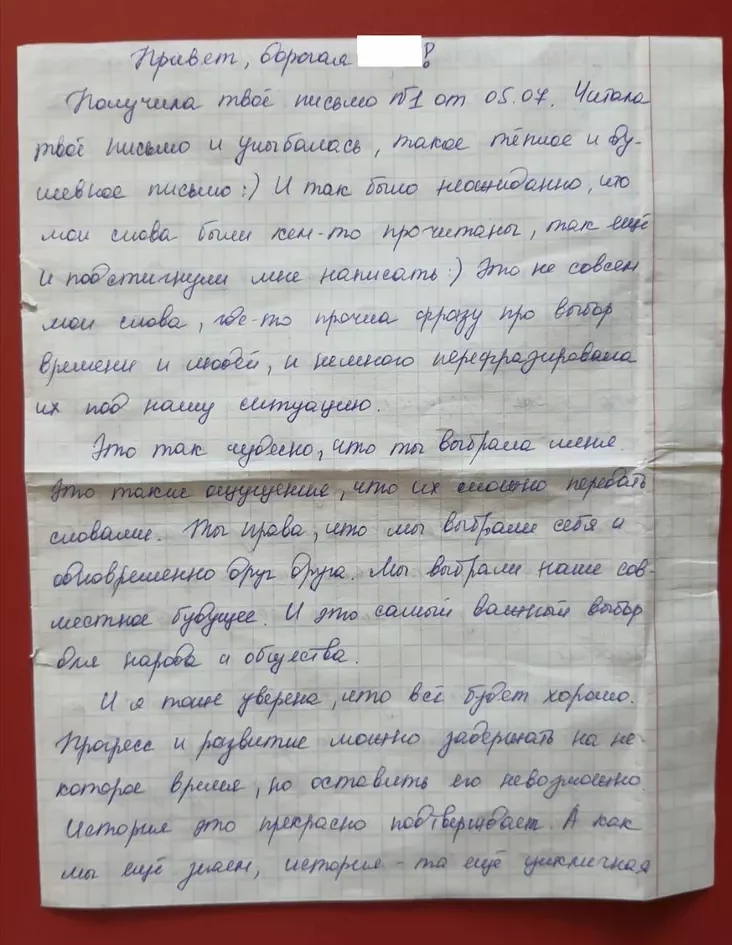 Привет, дорогая !
Получила твоё письмо №1 от 05.07. Читала
твоё письмо и улыбалась, такое тёплое и ду-
шевное письмо:) И так было неожиданно, что
мои слова были кем-то прочитаны, так ещё
и подстигнули мне написать:) Это не совсем
мои слова, где-то прочла фразу про выбор
времени и людей, и немного перефразировала
их под нашу ситуацию.
Это так чудесно, что ты выбрала меня.
Это такие ощущения, что их сложно передать
словами. Ты права, что мы выбрали себя и
одновременно друг друга. Мы выбрали наше сов-
местное будущее. И это самый важный выбор
для народа и общества.
И я тоже уверена, что всё будет хорошо.
Прогресс и развитие можно задержать на не-
которое время, но оставить его невозможно.
История это прекрасно подтверждает. А как
мы ещё знаем, история - та ещё цикличная